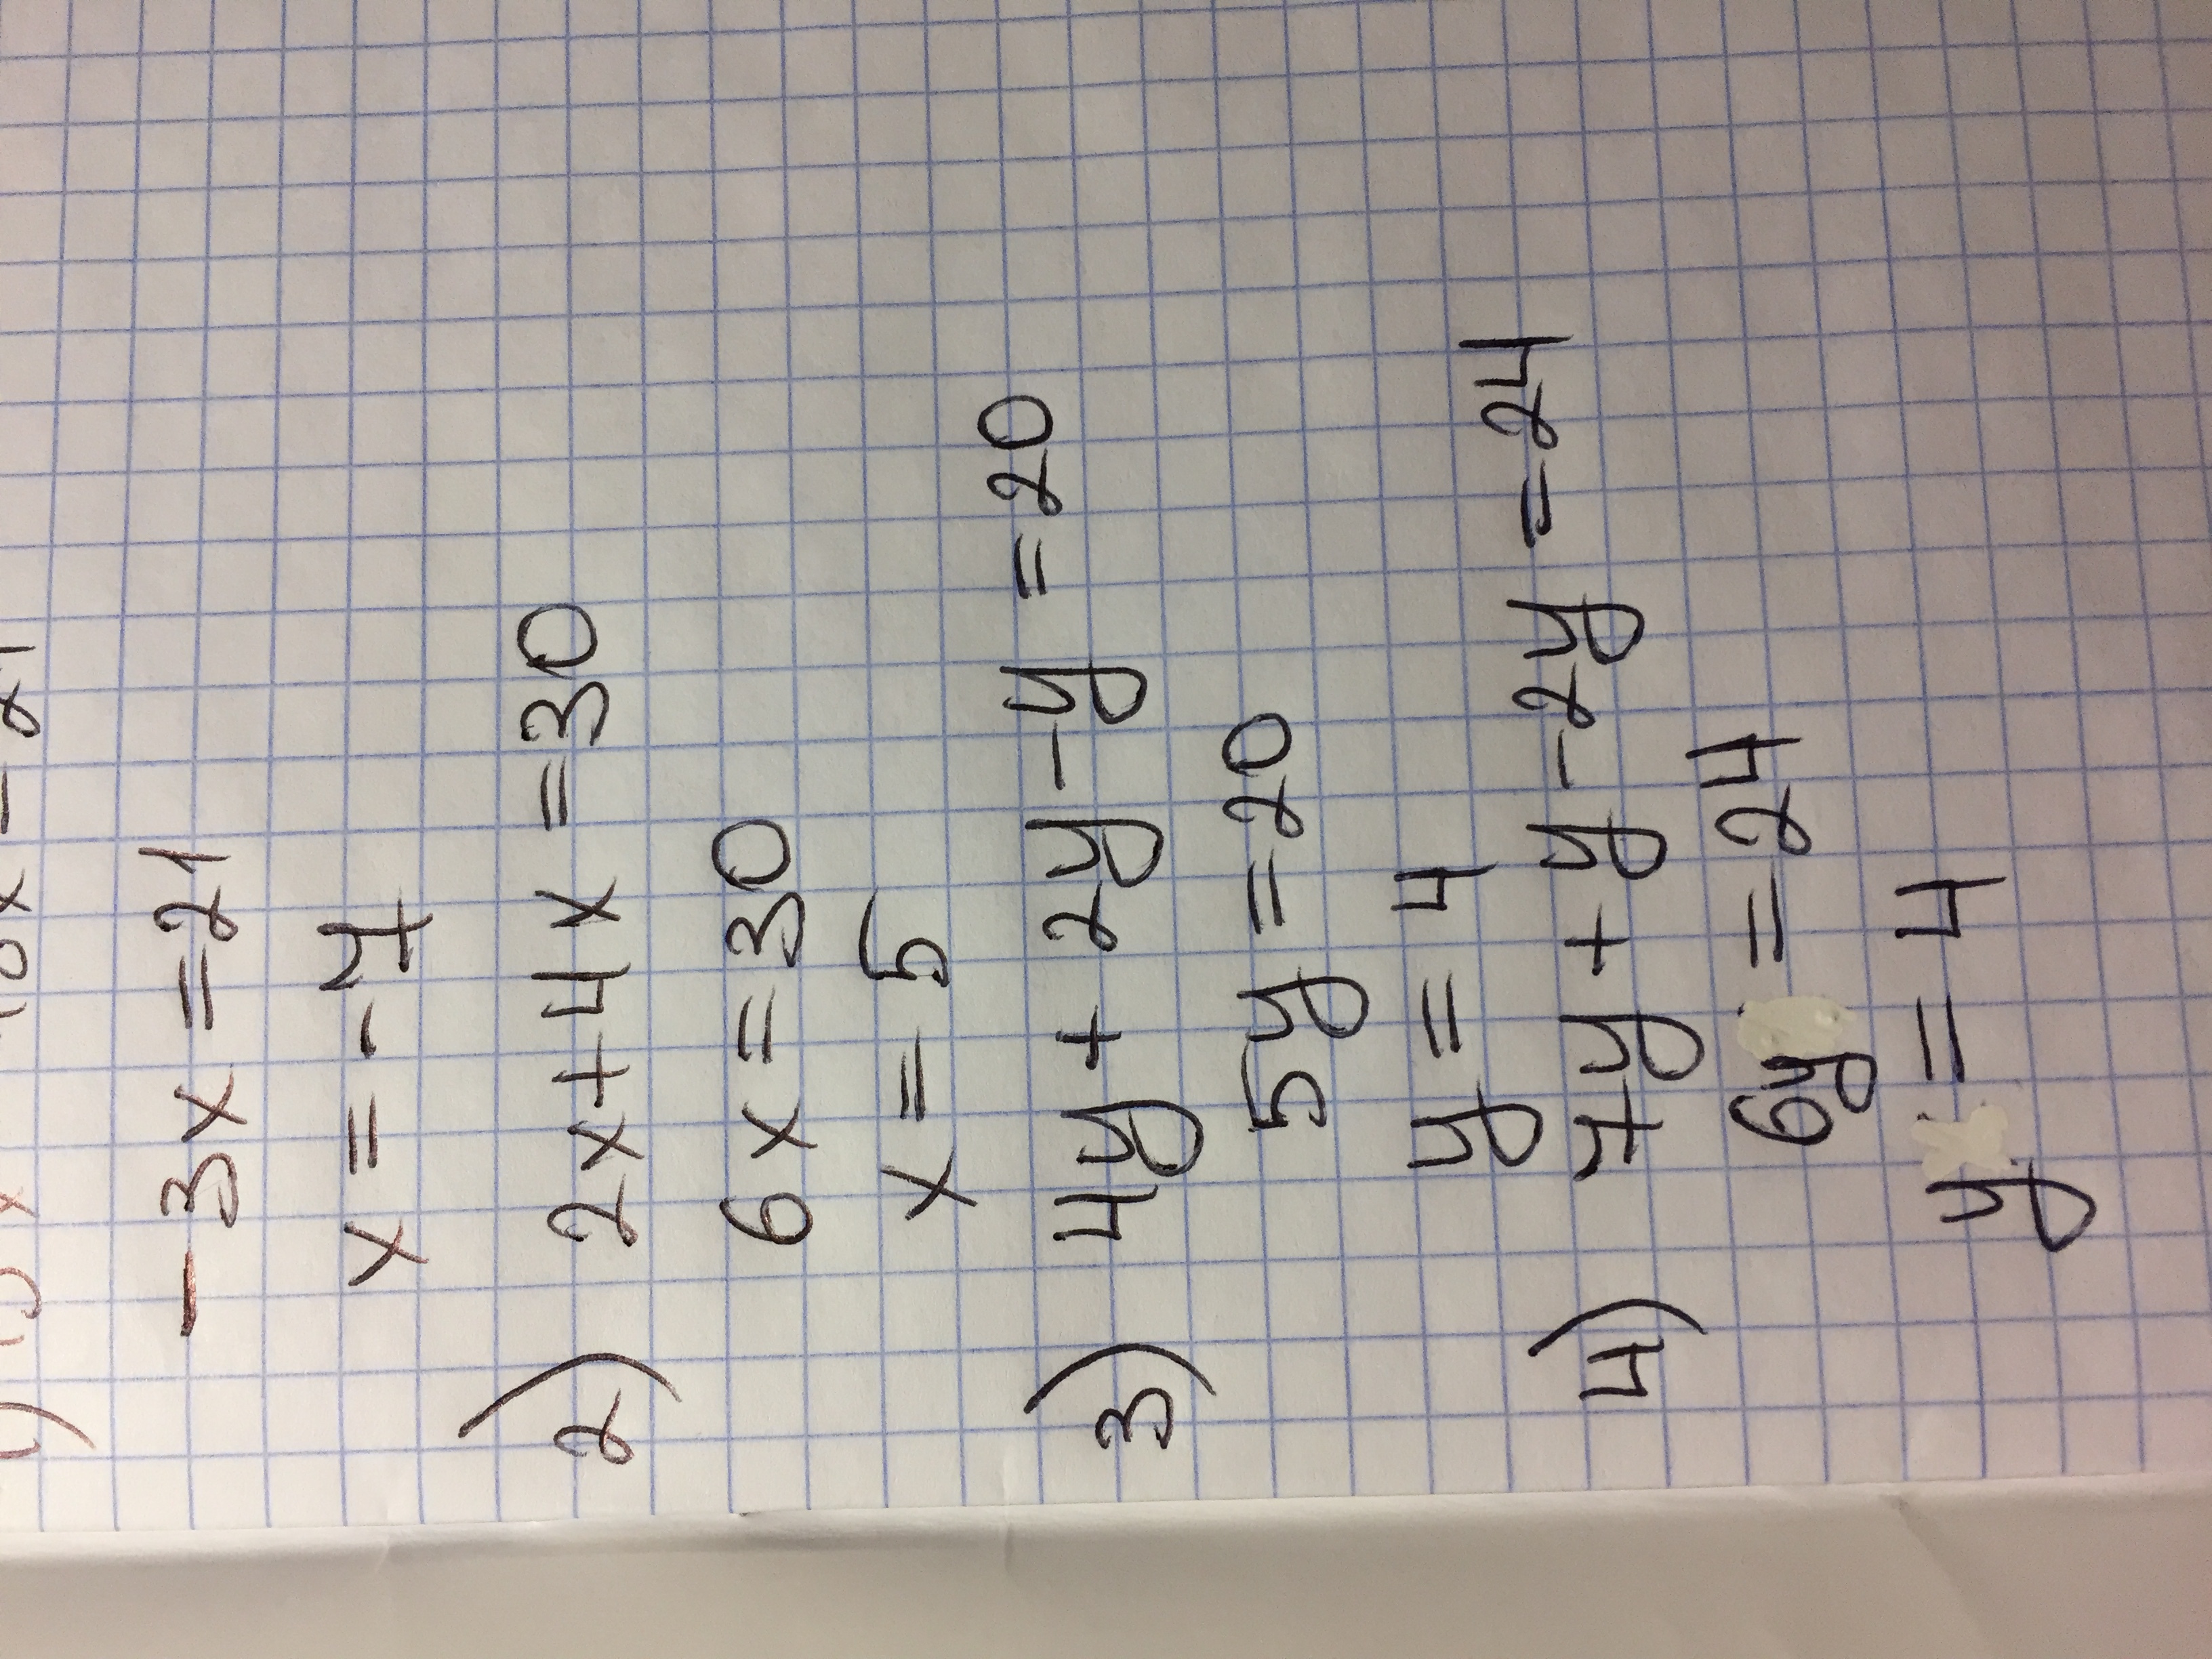 -3x = 21
x = -7
2) 2x + 4x = 30
6x = 30
x = 5
3) 4y + 2y - y = 20
5y = 20
y = 4
4) 7y + y - 2y = 24
6y = 24
y = 4